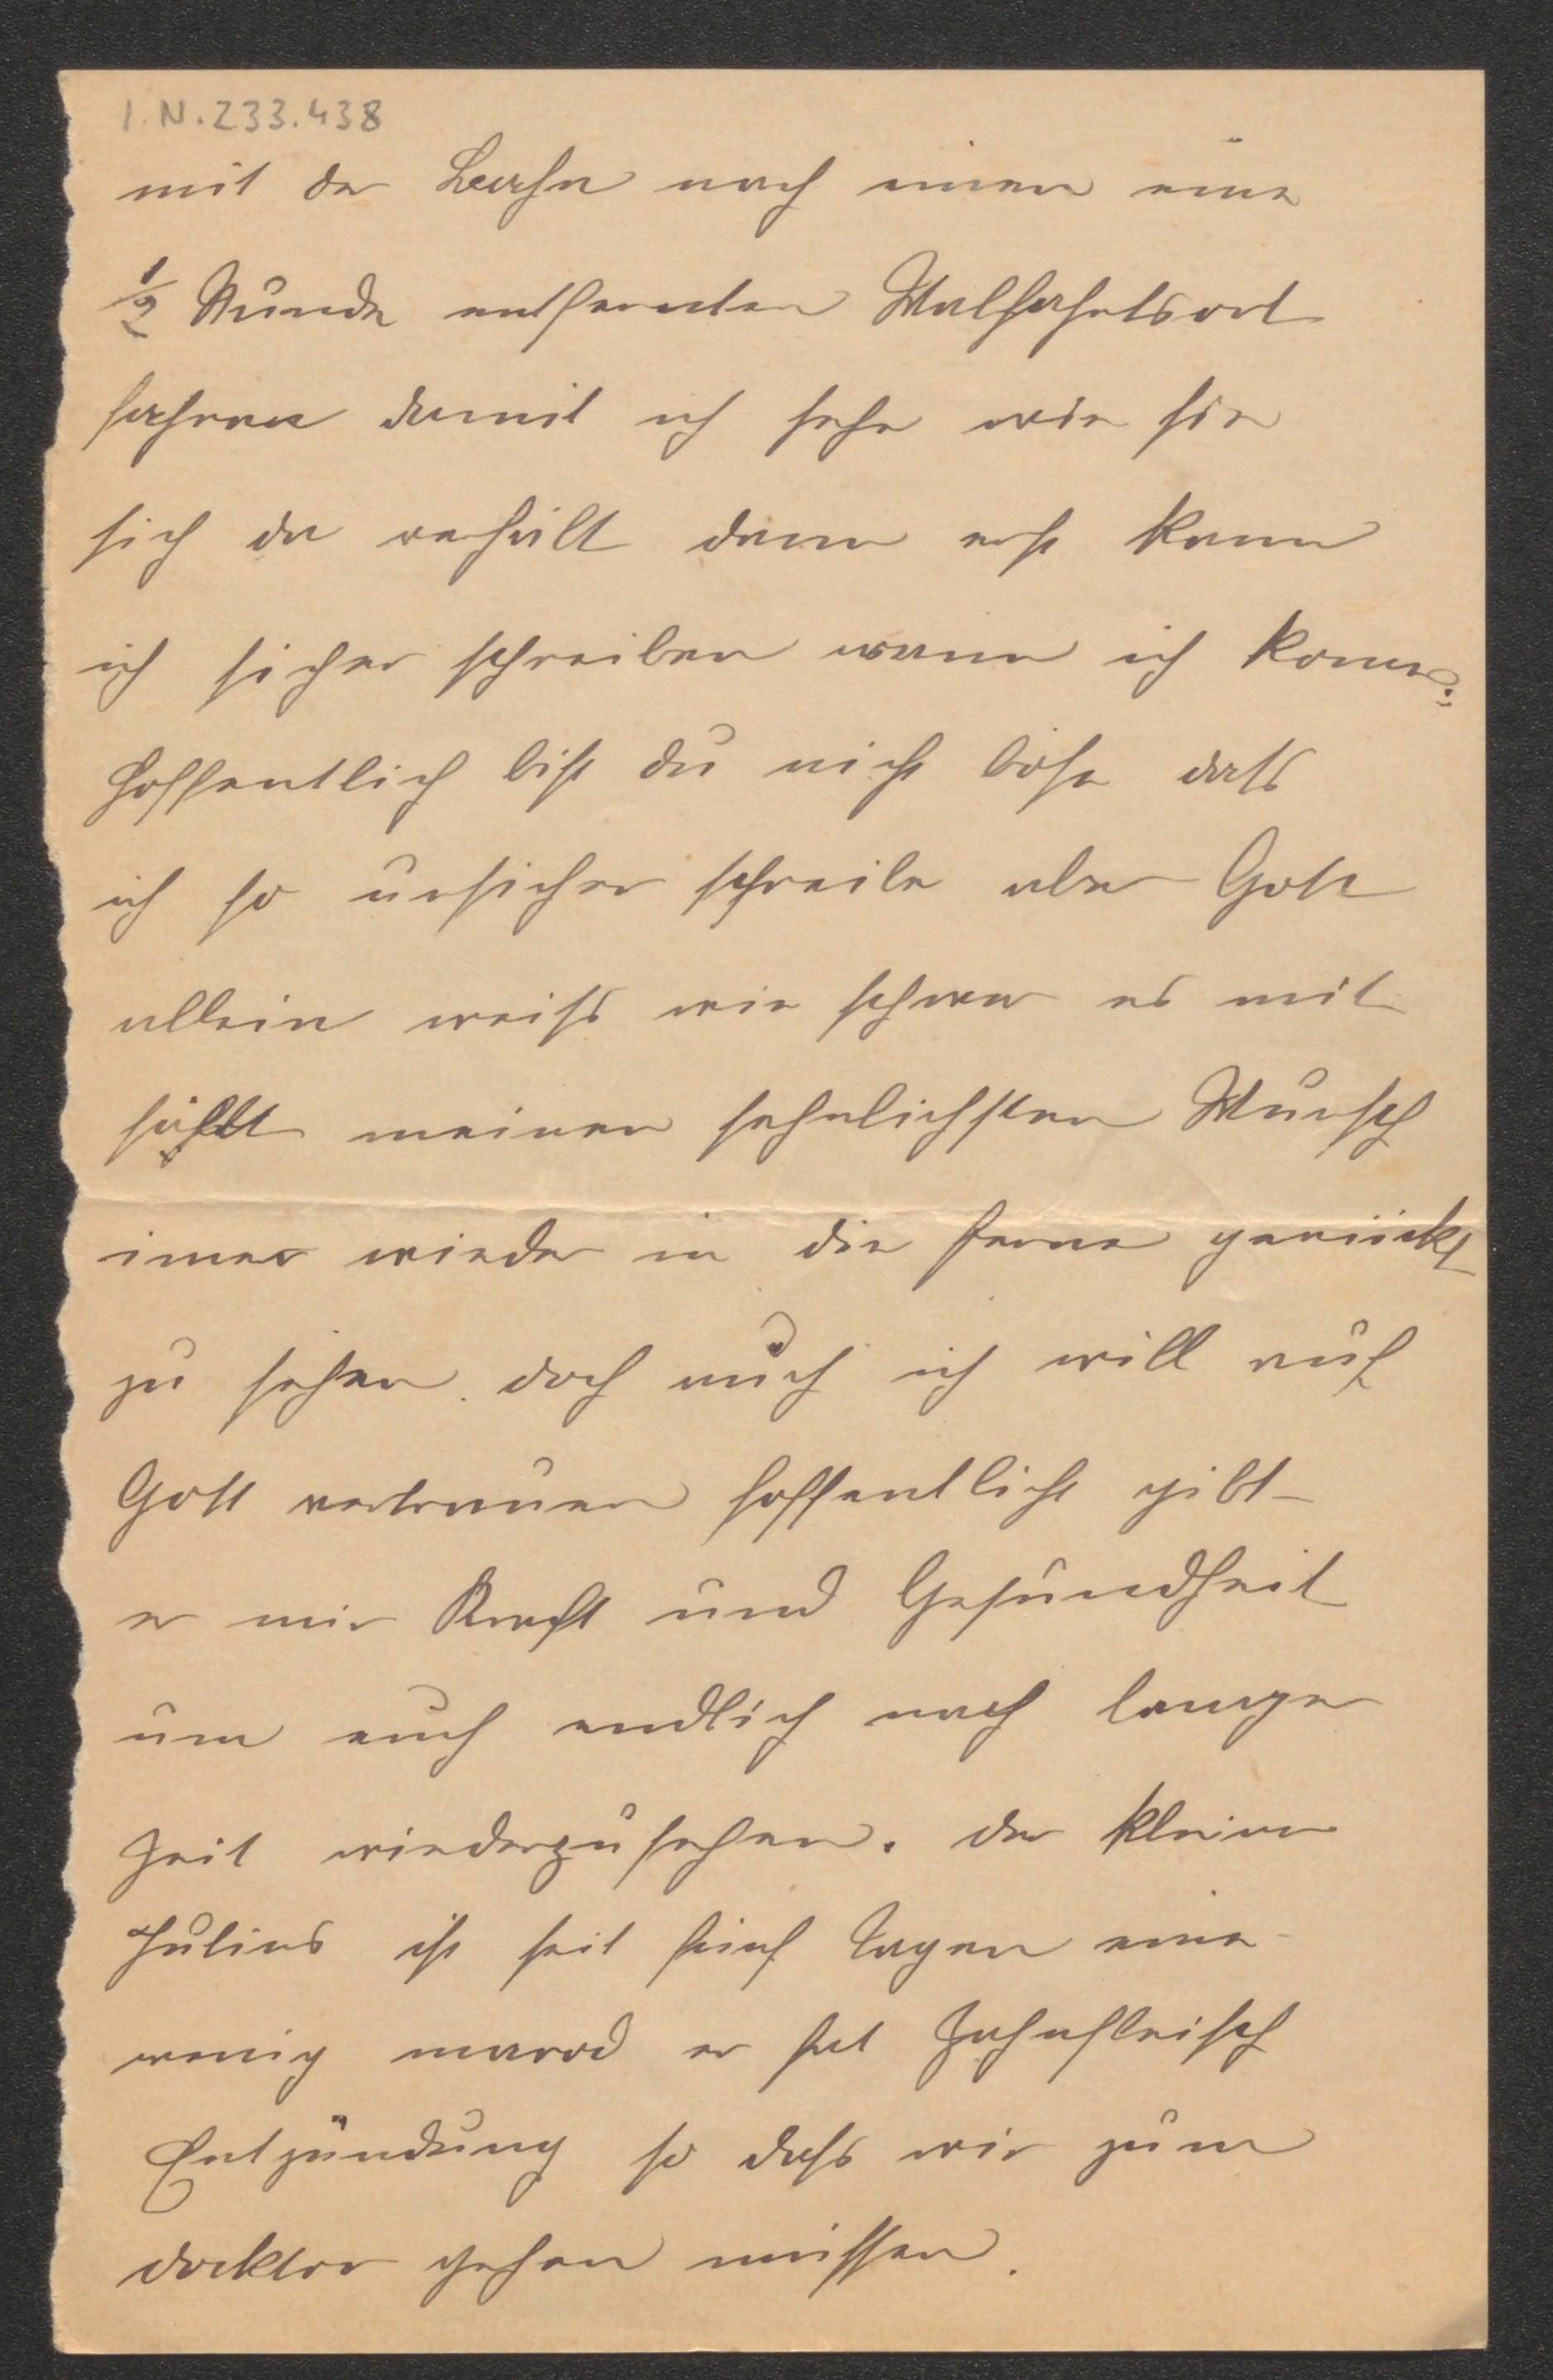 I.N.233.438
mit der Bahn nach einen eine
1/2 Stunde entfernten Walfahrtsort
fahren damit ich sehe wie sie
sich da verhält dann erst kann
ich sicher schreiben wann ich komme.
hoffentlich bist du nicht böse dass
ich so unsicher schreibe aber Gott
allein weiss wie schwer es mit
fällt meinen sehnlichsten Wunsch
imer wieder in die ferne gerückt
zu sehen. doch auch ich will auf
Gott vertrauen hoffentlich gibt
er mir Kraft und Gesundheit
um euch endlich nach langer
Zeit wiederzusehen. der kleine
Julius ist seit fünf Tagen eine
wenig marod er hat Zahnfleisch
Entzündung so dass wir zum
docktor gehen müssen.